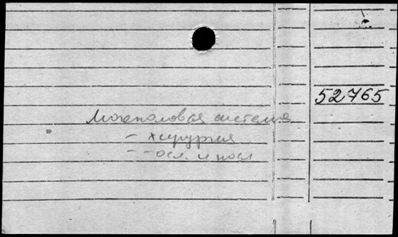 52765
Мочеполовая система
- хирургия
- осл. после